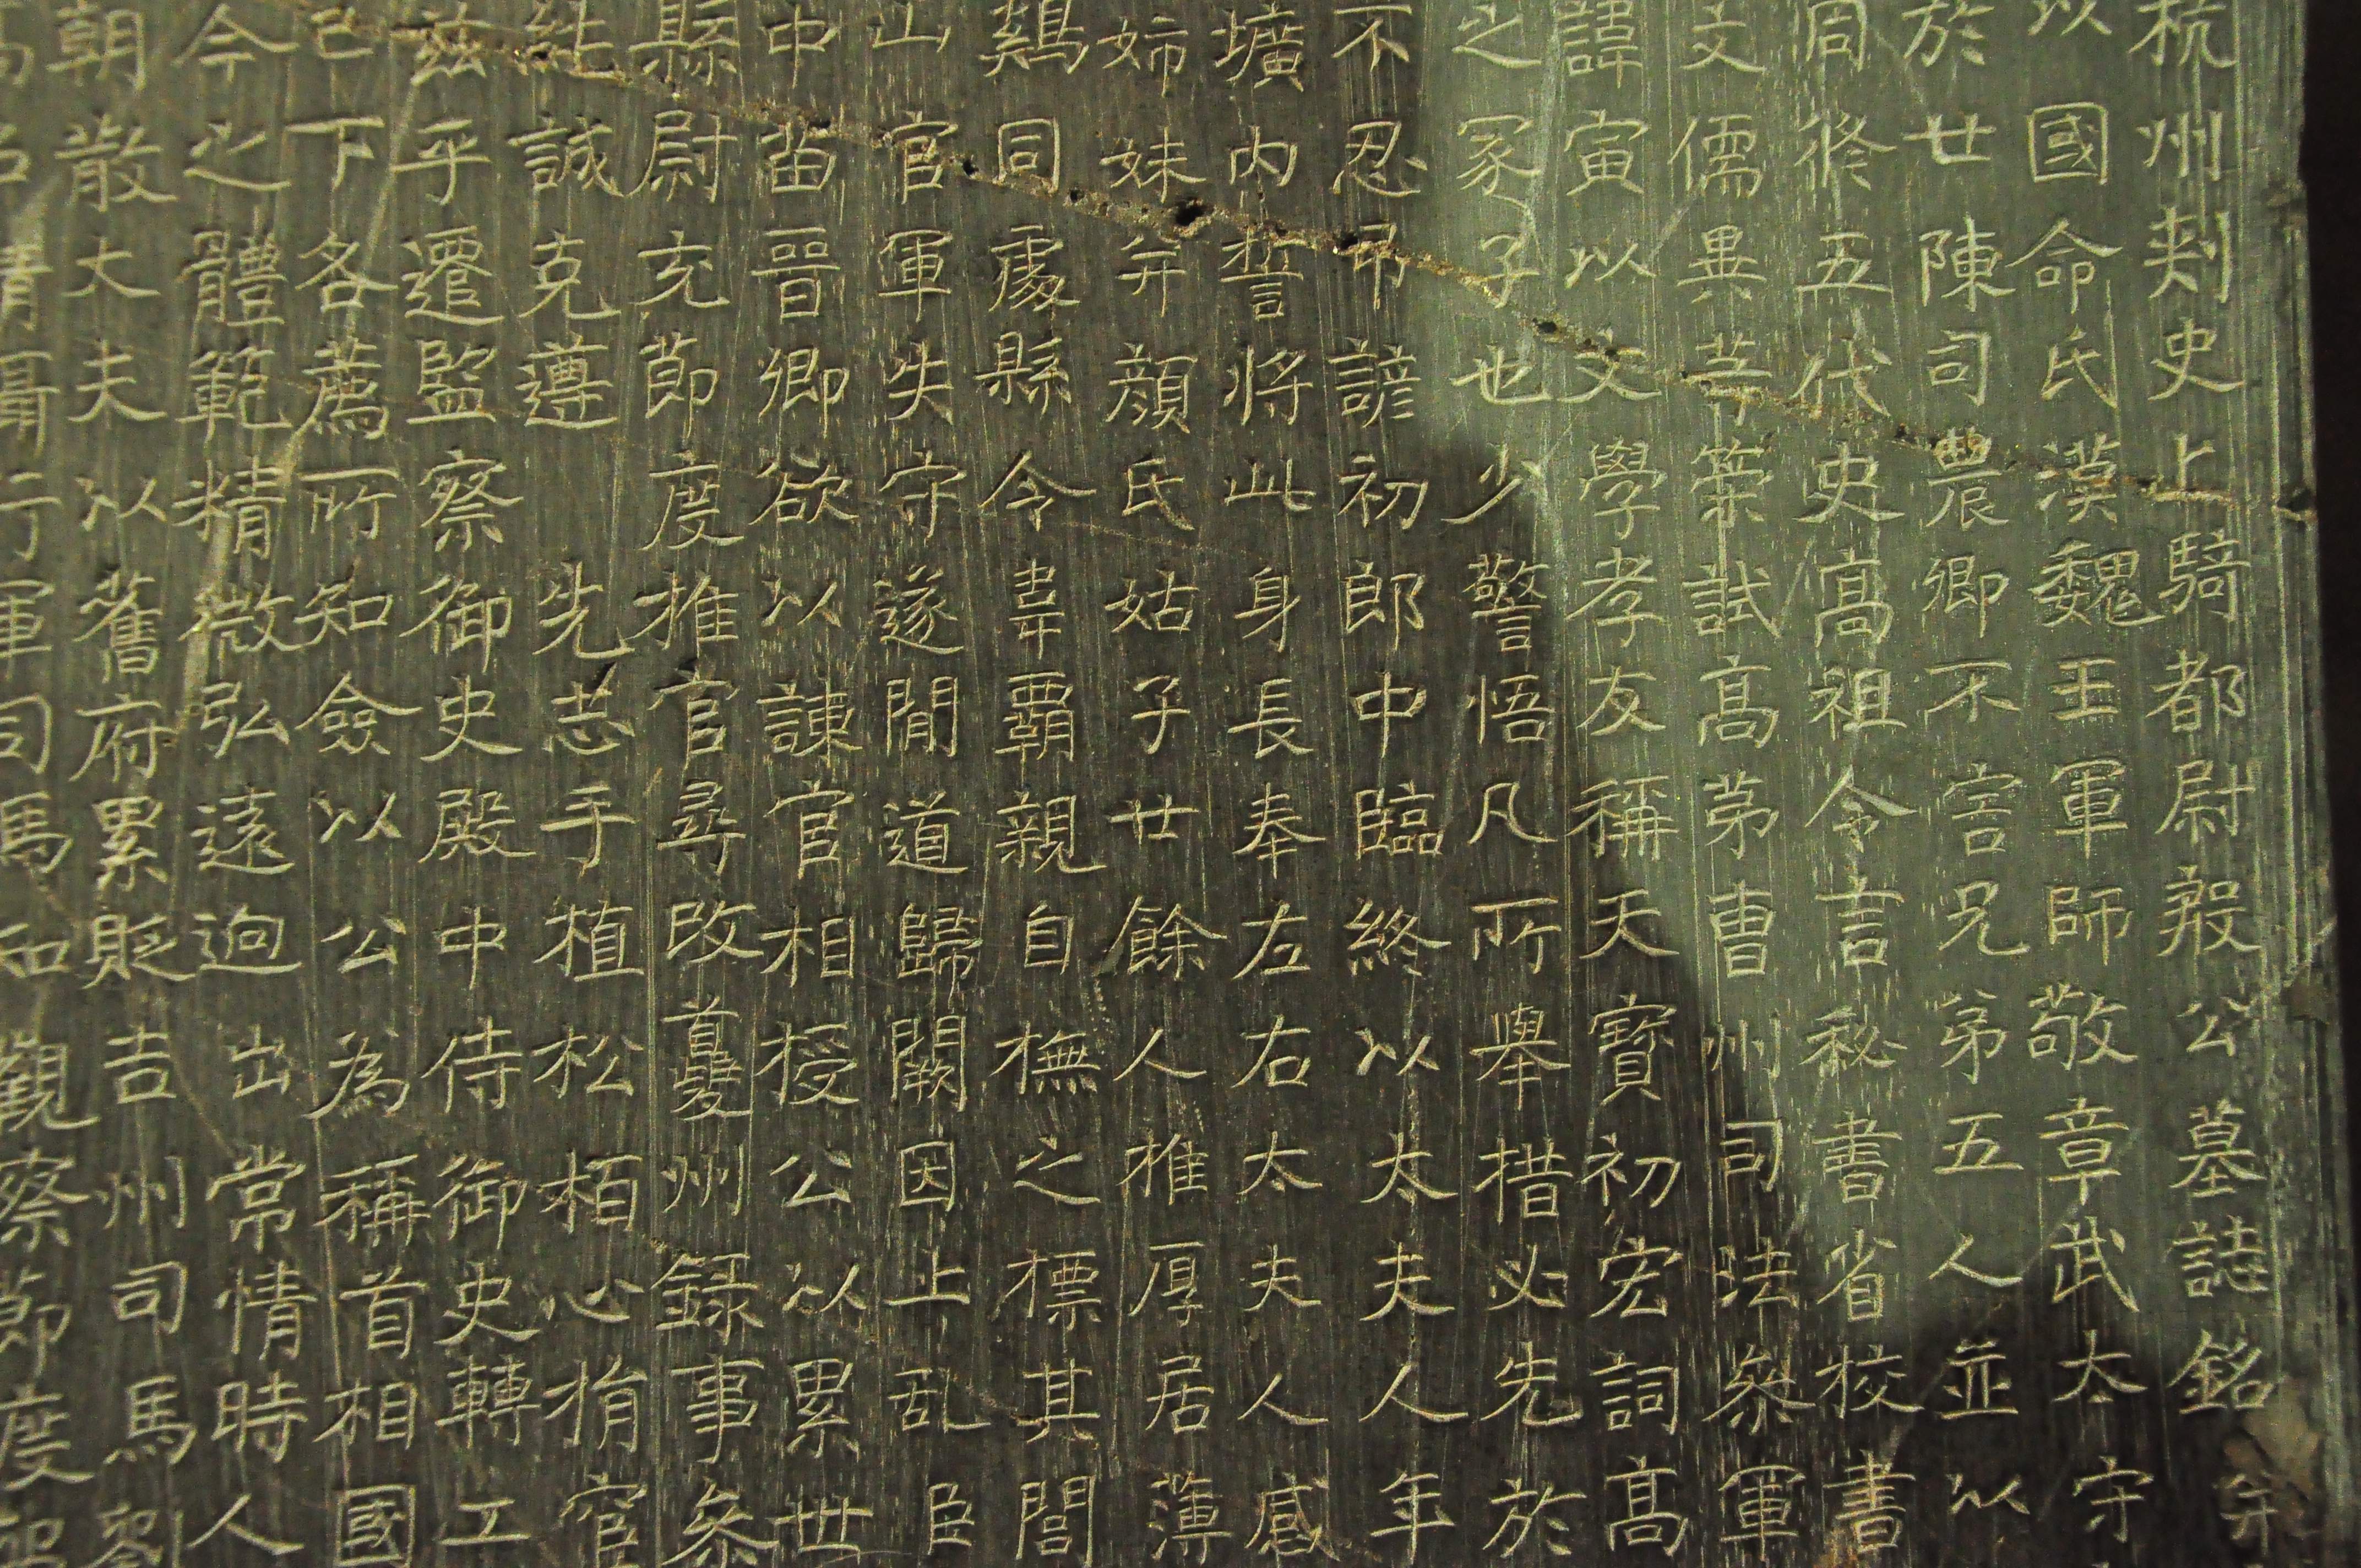 杭州刾史上騎都尉殷公墓誌銘
以國命氏漢魏王軍師敬章武太守
於廿陳司農卿不害兄弟五人並以
同修五代史高祖令言秘書省校書
文儒異等策試高第曹州司法叅軍
諱寅以文學孝友稱天寶初宏詞高
之冢子也少警悟凡所舉措必先於
不忍帝諺初郎中臨終以太夫人年
壙內誓將此身長奉左右太夫人感
姉妹弁顏氏姑子廿餘人推厚居薄
鷄同處縣令韋覇親自橅之標其閭
山官軍失守遂間道歸闕因上乱臣
中畄晉卿欲以諫官相授公以累世
縣尉充節度推官尋改首夔州録事叅
誠克遵先志手植松栢心捐窅
兹乎遷監察御史殿中侍御史轉工
已下各薦所知僉以公為稱首相國
今之體範精微弘遠逈出常情時人
朝散大夫以舊府累貶吉州司馬劉
行軍司馬和觀察節度